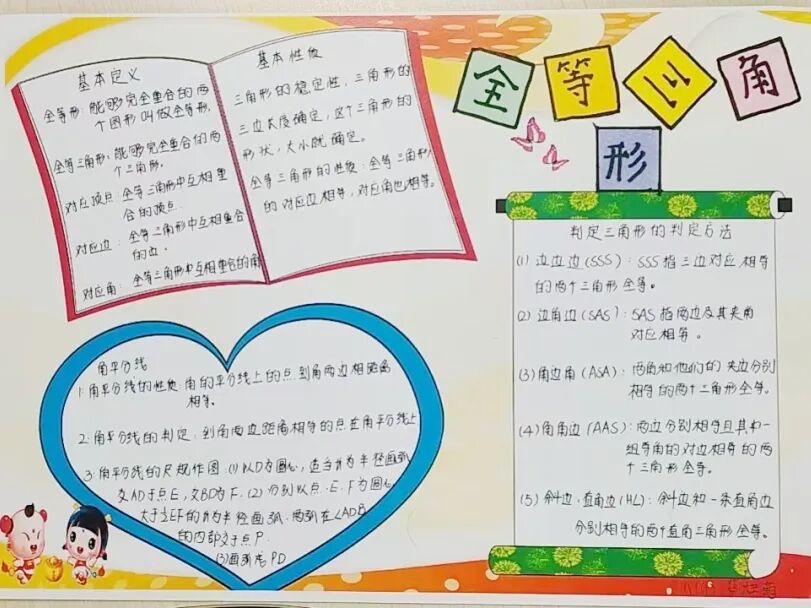 全等三角
形
基本定义
全等形:能够完全重合的两
个图形叫做全等形.
全等三角形:能够完全重合的两
个三角形.
对应顶点:全等三角形中互相重
合的顶点.
对应边:全等三角形中互相重合
的边.
对应角:全等三角形中互相重合的角
基本性质
三角形的稳定性,三角形的
三边长度确定,这个三角形的
形状,大小就确定。
全等三角形的性质:全等三角形
的对应边相等,对应角也相等。
判定三角形的判定方法
(1) 边边边(SSS):SSS指三边对应相等
的两个三角形全等。
(2) 边角边(SAS):SAS指两边及其夹角
对应相等。
(3) 角边角(ASA):两角和他们的夹边分别
相等的两个三角形全等。
(4) 角角边(AAS):两边分别相等且其中一
组等角的对边相等的两
个三角形全等。
(5) 斜边、直角边(HL):斜边和一条直角边
分别相等的两个直角三角形全等。
角平分线
1.角平分线的性质:角的平分线上的点到角两边相距离
相等。
2.角平分线的判定:到角两边距离相等的点在角平分线上
3.角平分线的尺规作图:(1)以D为圆心,适当长为半径画弧
交AD于点E,交BD为F.(2)分别以点E、F为圆心
大于½EF的长为半径画弧.两弧在∠ADB
的内部交于点P.
(3)画射线PD